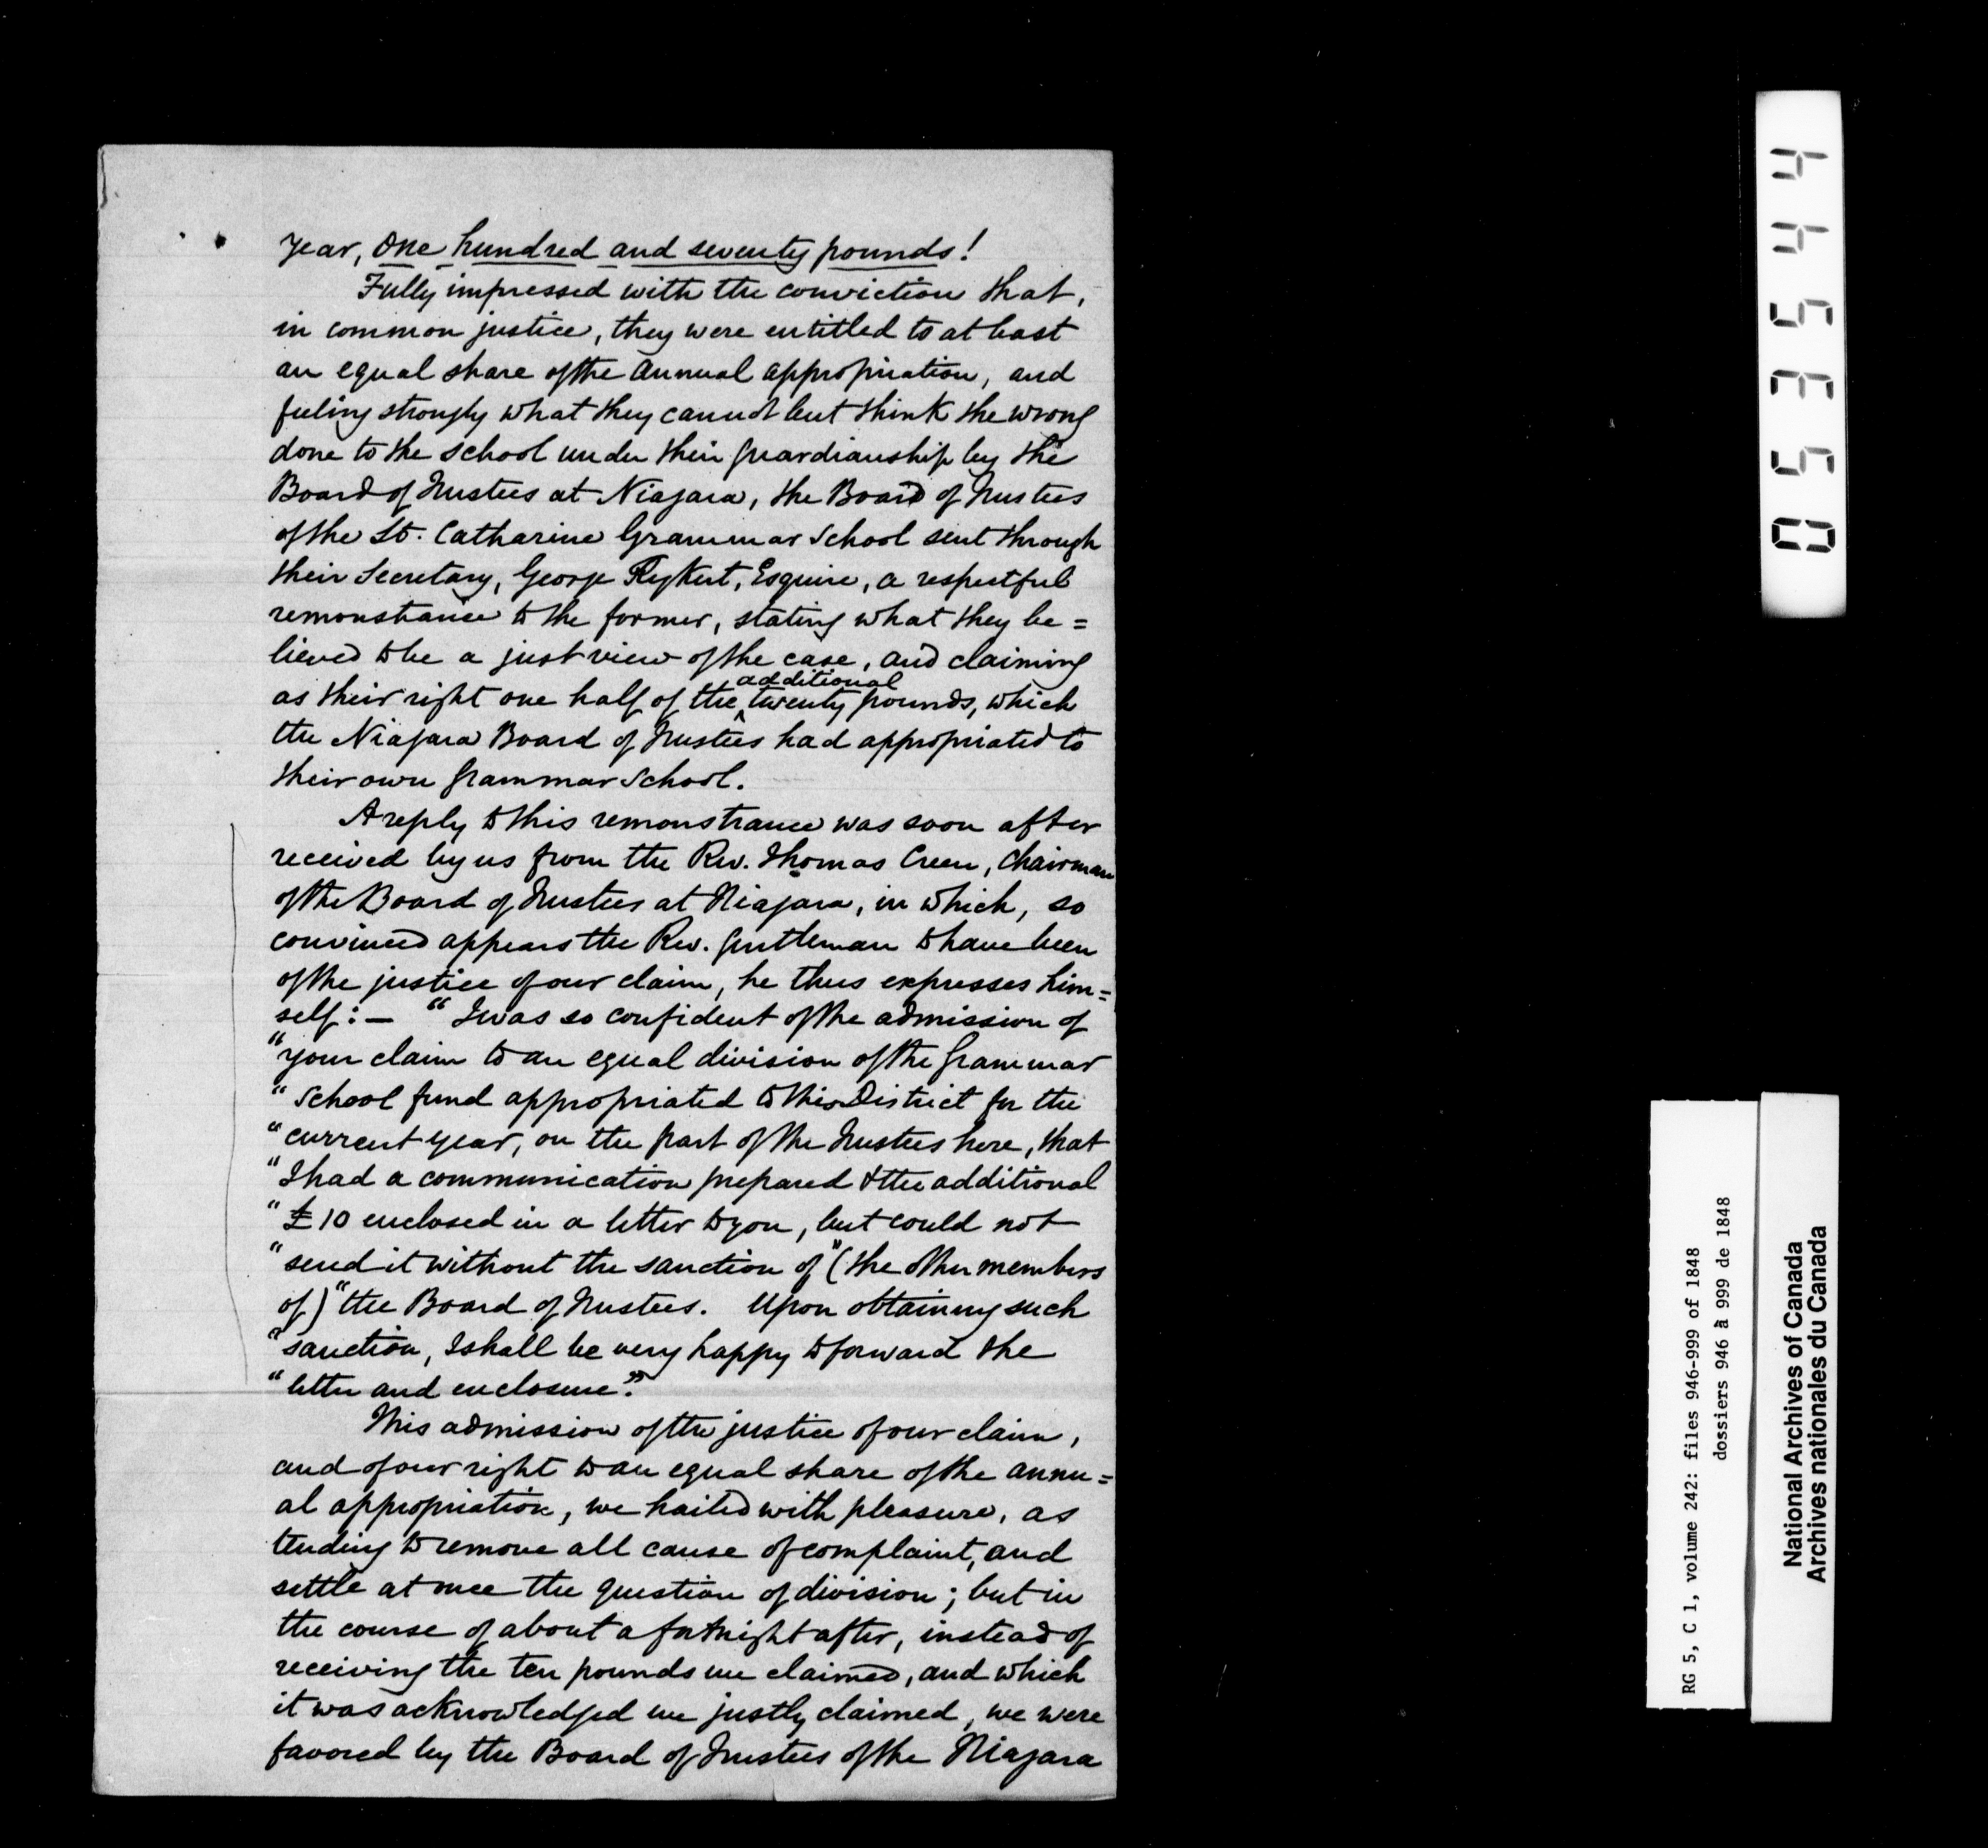 year, One hundred and seventy pounds!
Fully impressed with the conviction that,
in common justice, they were entitled to at least
an equal share of the annual appropriation, and
feeling strongly what they cannot but think the wrong
done to the school under their guardianship by the
Board of Trustees at Niagara, the Board of Trustees
of the St. Catharine Grammar School sent through
their Secretary, George Rykert, Esquire, a respectful
remonstrance to the former, stating what they be=
lieved to be a just view of the case, and claiming
as their right one half of the additional twenty pounds, which
the Niagara Board of Trustees had appropriated to
their own Grammar School.
A reply to this remonstrance was soon after
received by us from the Rev. Thomas Creen, Chairman
of the Board of Trustees at Niagara, in which, so
convinced appears the Rev. gentleman to have been
of the justice of our claim, he thus expresses him=
self:— "I was so confident of the admission of
"your claim to an equal division of the Grammar
"School fund appropriated to this District for the
"current year, on the part of the Trustees here, that
"I had a communication prepared & the additional
"£10 enclosed in a letter to you, but could not
"send it without the sanction of" (the other members
of) "the Board of Trustees. Upon obtaining such
"sanction, I shall be very happy to forward the
"letter and enclosure."
This admission of the justice of our claim,
and of our right to an equal share of the annu=
al appropriation, we hailed with pleasure, as
tending to remove all cause of complaint, and
settle at once the question of division; but in
the course of about a fortnight after, instead of
receiving the ten pounds we claimed, and which
it was acknowledged we justly claimed, we were
favored by the Board of Trustees of the Niagara
053544
RG 5, C 1, volume 242: files 946-999 of 1848
dossiers 946 à 999 de 1848
National Archives of Canada
Archives nationales du Canada